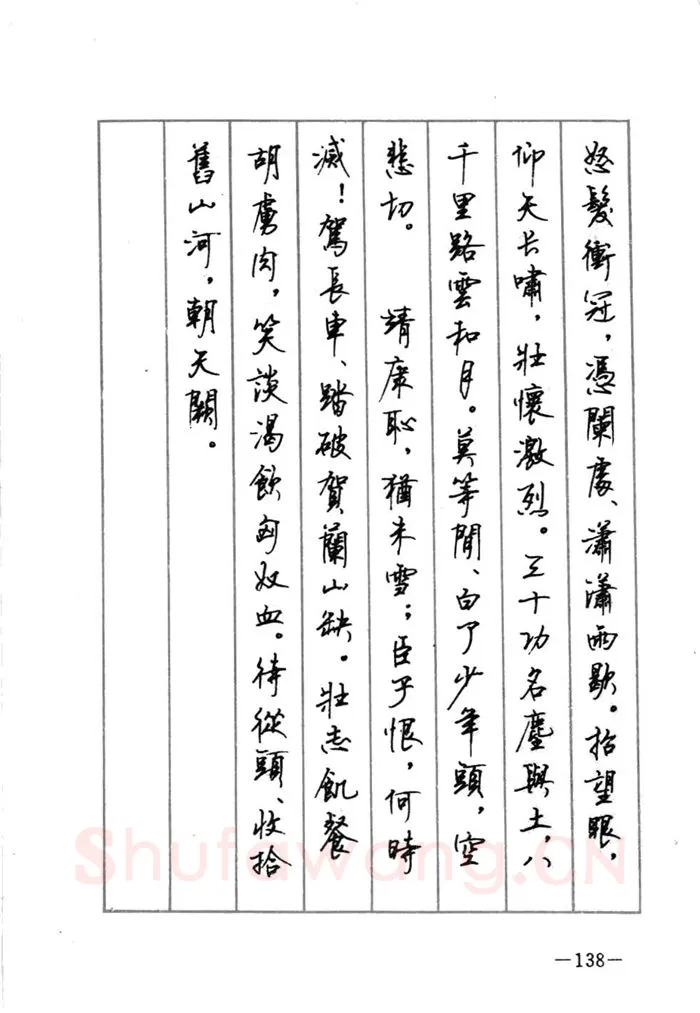 怒髮衝冠，憑闌處、瀟瀟雨歇。抬望眼，
仰天长嘯，壯懷激烈。三十功名塵與土，八
千里路雲和月。莫等閒、白了少年頭，空
悲切。 靖康恥，猶未雪；臣子恨，何時
滅！駕長車、踏破賀蘭山缺。壯志飢餐
胡虜肉，笑談渴飲匈奴血。待從頭、收拾
舊山河，朝天闕。
Shufawang.CN
—138—